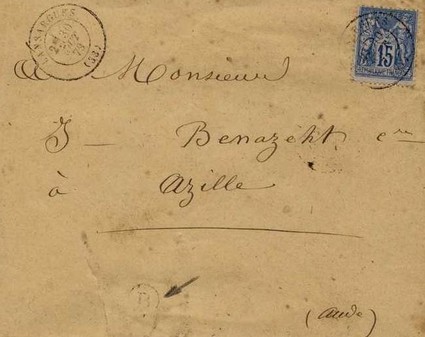 LANSARGUES
(33)
15
A Monsieur
J Benazeht
à Azille
(Aude)
B